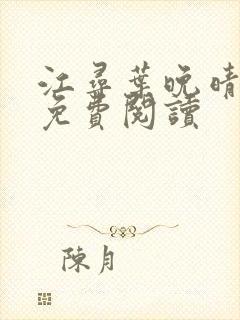 江尋葉晚晴
免費閱讀
陳月